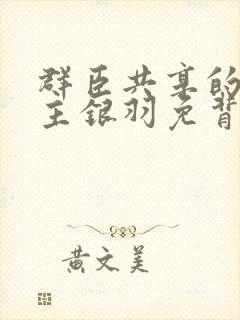 群臣共享的
主银羽免背
黄文美